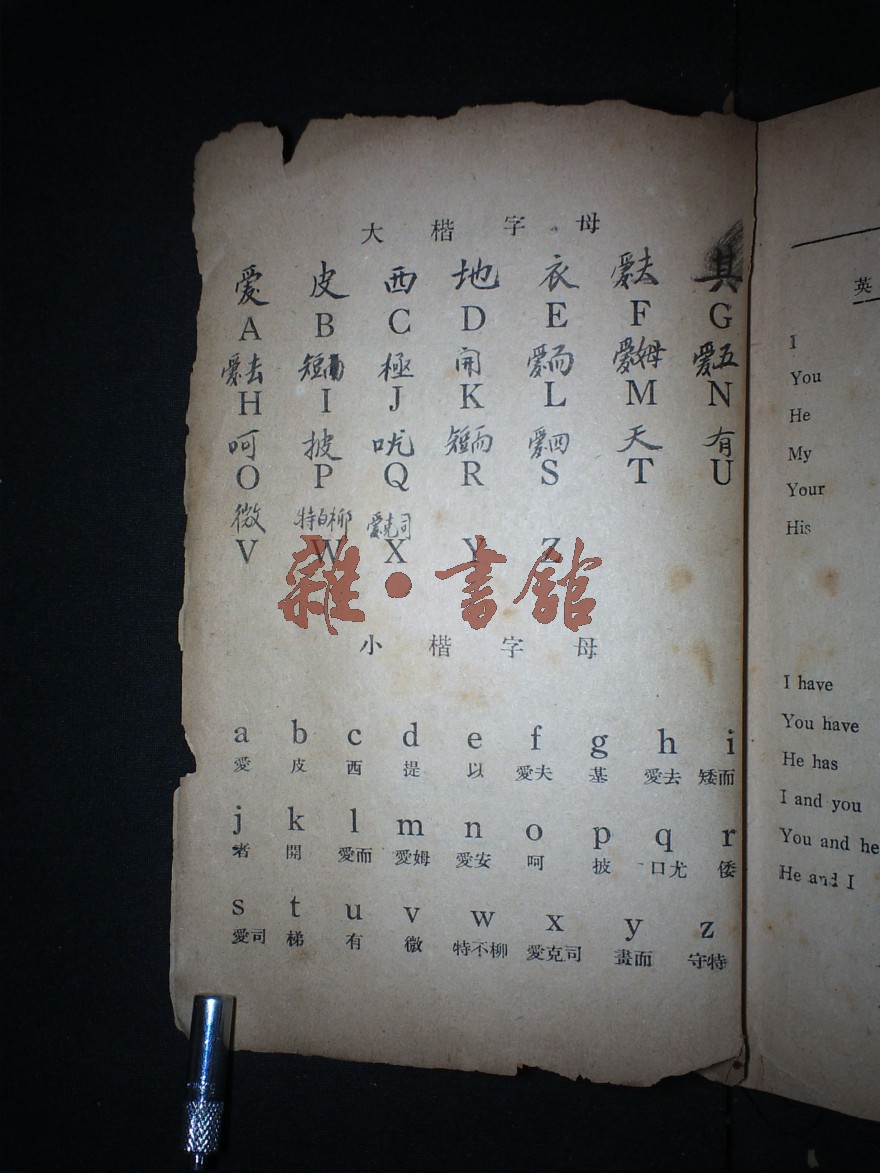 大楷字母
愛 皮 西 地 衣 愛去 其
A B C D E F G
愛去 極 開 愛而 愛姆 愛五
H I J K L M N
呵 披 吮 短而 愛四 天 有
O P Q R S T U
微 特白柳 愛克司
V W X Y Z
雜·書館
小楷字母
a b c d e f g h i
愛 皮 西 提 以 愛夫 基 愛去 矮而
j k l m n o p q r
者 開 愛而 愛姆 愛安 呵 披 口尤 倭
s t u v w x y z
愛司 梯 有 微 特不柳 愛克司 畫而 守特
英
I
You
He
My
Your
His
I have
You have
He has
I and you
You and he
He and I